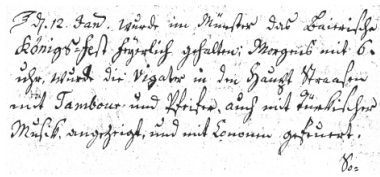 d. 12. Jan. wurde im Münster das Bairische
Königs-Fest feyerlich gehalten; Morgens mit 6.
uhr, wurde die in den Haupt Straasen
mit Tambour und Pfeifer, auch mit türkischer
Musik, angezeigt, und mit Canonen gefeuert.
So=